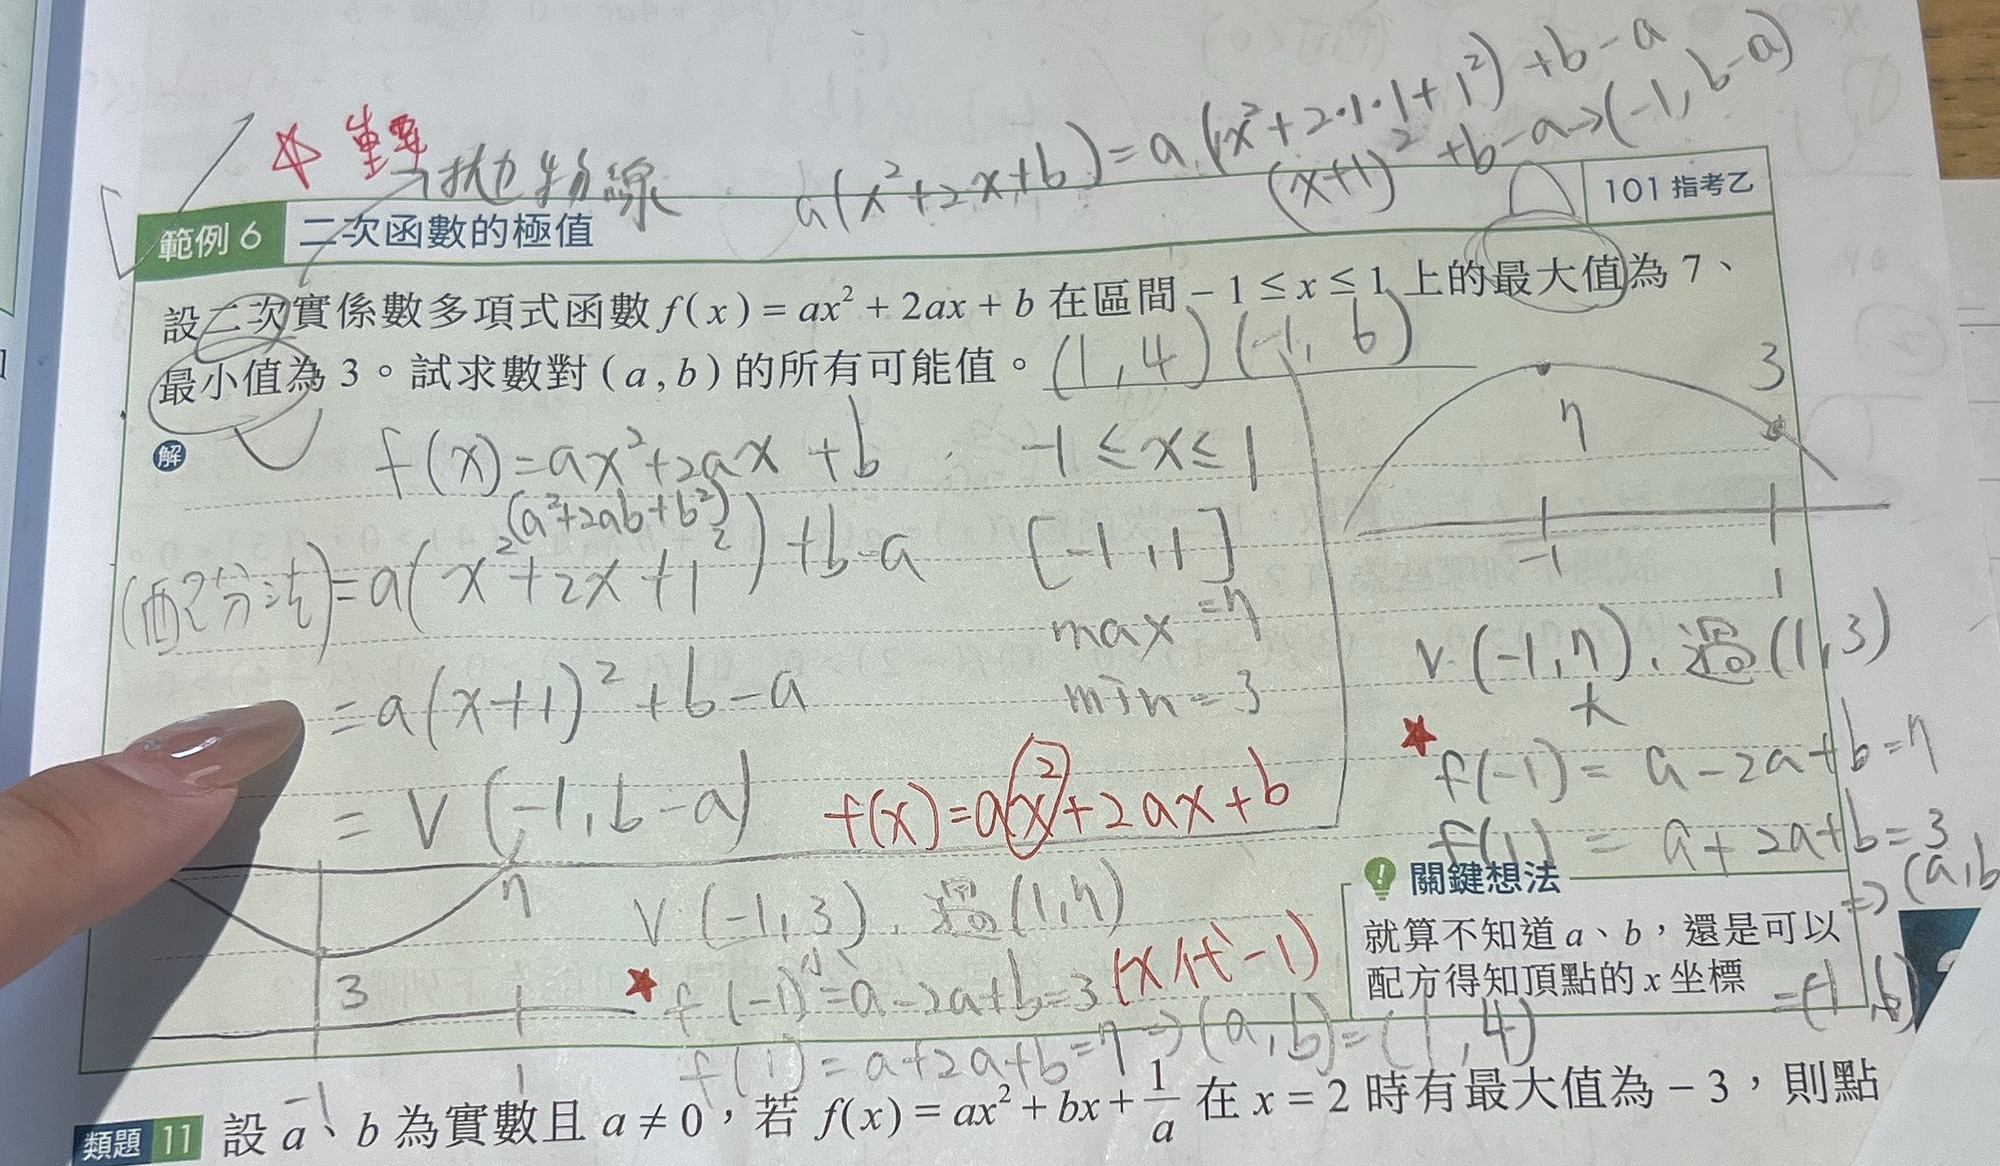 重要
→拋物線
a(x²+2x+b)=a(x²+2·1·1+1²)+b-a
(x+1)²+b-a→(-1, b-a)
範例 6 二次函數的極值
101 指考乙
設二次實係數多項式函數 f(x)=ax²+2ax+b 在區間 -1≤x≤1 上的最大值為 7、
最小值為 3。試求數對(a,b)的所有可能值。(1,4)(-1,6)
解
f(x)=ax²+2ax+b -1≤x≤1
(a²+2ab+b²)
=a(x²+2x+1²)+b-a [-1,1]
max=7
=a(x+1)²+b-a min=3
=V(-1,b-a)
f(x)=ax²+2ax+b
3
7
-1 1
V(-1,7)、過(1,3)
大
f(-1)=a-2a+b=7
f(1)=a+2a+b=3
⇒(a,b
=(-1,6)
7
3
-1 1
V(-1,3)、過(1,7)
小
f(-1)=a-2a+b=3 (x代-1)
f(1)=a+2a+b=7⇒(a,b)=(1,4)
關鍵想法
就算不知道 a、b，還是可以
配方得知頂點的 x 坐標
類題 11 設 a、b 為實數且 a≠0，若 f(x)=ax²+bx+1/a 在 x=2 時有最大值為-3，則點